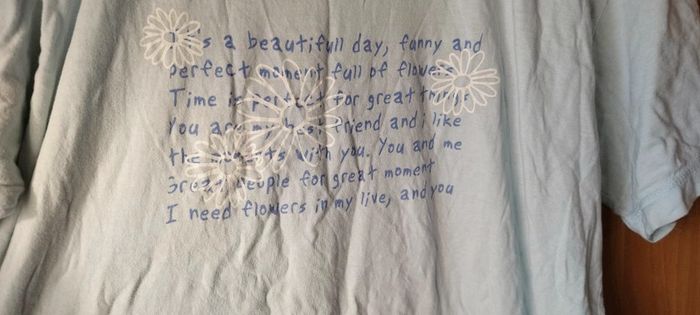 It's a beautifull day, fanny and
perfect moment full of flowers
Time is perfect for great things
You are my best friend and i like
the moments with you. You and me
Great people for great moment
I need flowers in my live, and you